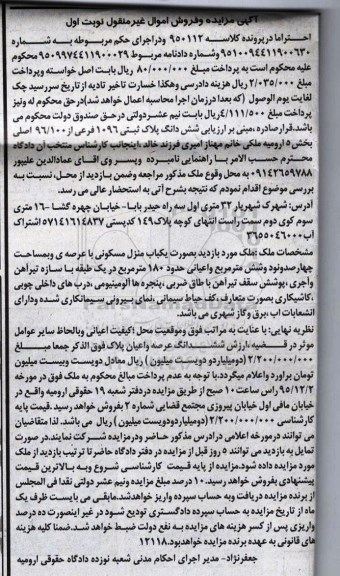 آگهی مزایده وفروش اموال غیرمنقول نوبت اول
احتراما درپرونده کلاسه ۹۵۰۱۱۲ ودراجرای حکم مربوطه به شماره
۹۵۱۰۰۹۴۴۱۱۹۰۰۶۳۰ وشماره دادنامه مربوط ۹۵۰۹۹۷۴۴۱۱۹۰۰۰۲۹ محکوم
علیه محکوم است به پرداخت مبلغ ۸۰/۰۰۰/۰۰۰ ریال بابت اصل خواسته وپرداخت
مبلغ ۲/۰۳۵/۰۰۰ ریال هزینه دادرسی وهکذا خسارت تاخیر تادیه از تاریخ سررسید چک
لغایت یوم الوصول (که بعدا درزمان اجرا محاسبه اعمال خواهد شد)درحق محکوم له ونیز
پرداخت مبلغ ۴/۱۱۱/۵۰۰ریال بابت نیم عشردولتی درحق صندوق دولت محکوم می
باشد.قرارصادره ،مبنی بر ارزیابی شش دانگ پلاک ثبتی ۱۰۹۶ فرعی از۹۶/۱۰۰ اصلی
بخش ۵ ارومیه ملکی خانم مهناز امیری فرزند خالد ،اینجانب کارشناس منتخب آن دادگاه
محترم حسب الامر با راهنمایی نامبرده وپسر وی آقای عمادالدین علیپور
۰۹۱۴۲۶۵۹۷۸۸ به محل وقوع ملک مذکور مراجعه وضمن بازدید از محل، نسبت به
بررسی موضوع اقدام نمودم که نتیجه بشرح آتی به استحضار عالی می رسد.
آدرس: شهرک شهریار ۳۲ متری اول سه راه حیدر بابا- خیابان چهره گشا -۱۶ متری
سوم کوی دوم سمت راست انتهای کوچه پلاک۱۴۹ کدپستی ۵۷۱۴۱۶۱۴۸۳۷ اشتراک
آب۳۶۵۵۰۴۶۰۰۰
مشخصات ملک :ملک مورد بازدید بصورت یکباب منزل مسکونی با عرصه ی وبمساحت
چهارصدونود وشش مترمربع واعیانی حدود ۱۸۰ مترمربع در یک طبقه با سازه تیرآهن
وآجری ،پوشش سقف تیرآهن با طاق ضربی ،پنجره ها آلومینیومی ،درب های داخلی چوبی
،کاشیکاری بصورت متعارف،کف حیاط سیمانی ،نمای بیرونی سیمانکاری شده ودارای
انشعابات آب ،برق وگاز شهری می باشد.
نظریه نهایی: با عنایت به مراتب فوق وموقعیت محل ؛کیفیت اعیانی وبالحاظ سایر عوامل
موثر در قضیه ،ارزش ششدانگ عرصه واعیان پلاک فوق الذکر جمعا مبلغ
۲/۲۰۰/۰۰۰/۰۰۰ (دومیلیاردو دویست میلیون) ریال معادل دویست وبیست میلیون
تومان براورد واعلام میگردد.با توجه به عدم پرداخت مبالغ محکوم به ملک فوق در مورخه
۹۵/۱۲/۲ راس ساعت ۱۰ صبح از طریق مزایده دردفتر شعبه ۱۹ حقوقی ارومیه واقع در
خیابان مافی اول خیابان پیروزی مجتمع قضایی شماره ۲ بفروش خواهد رسید .قیمت پایه
کارشناسی ۲/۲۰۰/۰۰۰/۰۰۰ (دومیلیاردودویست میلیون) ریال می باشد. لذا متقاضیان
می توانند درمورخه اعلامی درآدرس مذکور حاضر ودرمزایده شرکت نمایند.در صورت
تمایل به بازدید می توانند ۵ روز قبل از مزایده در دفتر دادگاه حاضرتا ترتیب بازدید از ملک
مورد مزایده داده شود.مزایده از پایه قیمت کارشناسی شروع وبه بالاترین قیمت
پیشنهادی بفروش خواهد رسید.۱۰ درصد مبلغ مزایده ونیم عشر دولتی نقدا فی المجلس
از برنده مزایده دریافت وبه حساب سپرده واریز خواهدشد.مابقی می بایست ظرف یک
ماه از تاریخ مزایده به حساب سپرده دادگستری تودیع شود در غیر اینصورت ده درصد
واریزی پس از کسر هزینه های مزایده به نفع دولت ضبط خواهد شد.ضمنا کلیه هزینه
های قانونی به عهده برنده مزایده خواهدبود.۱۲۱۱۸
جعفرنژاد- مدیر اجرای احکام مدنی شعبه نوزده دادگاه حقوقی ارومیه